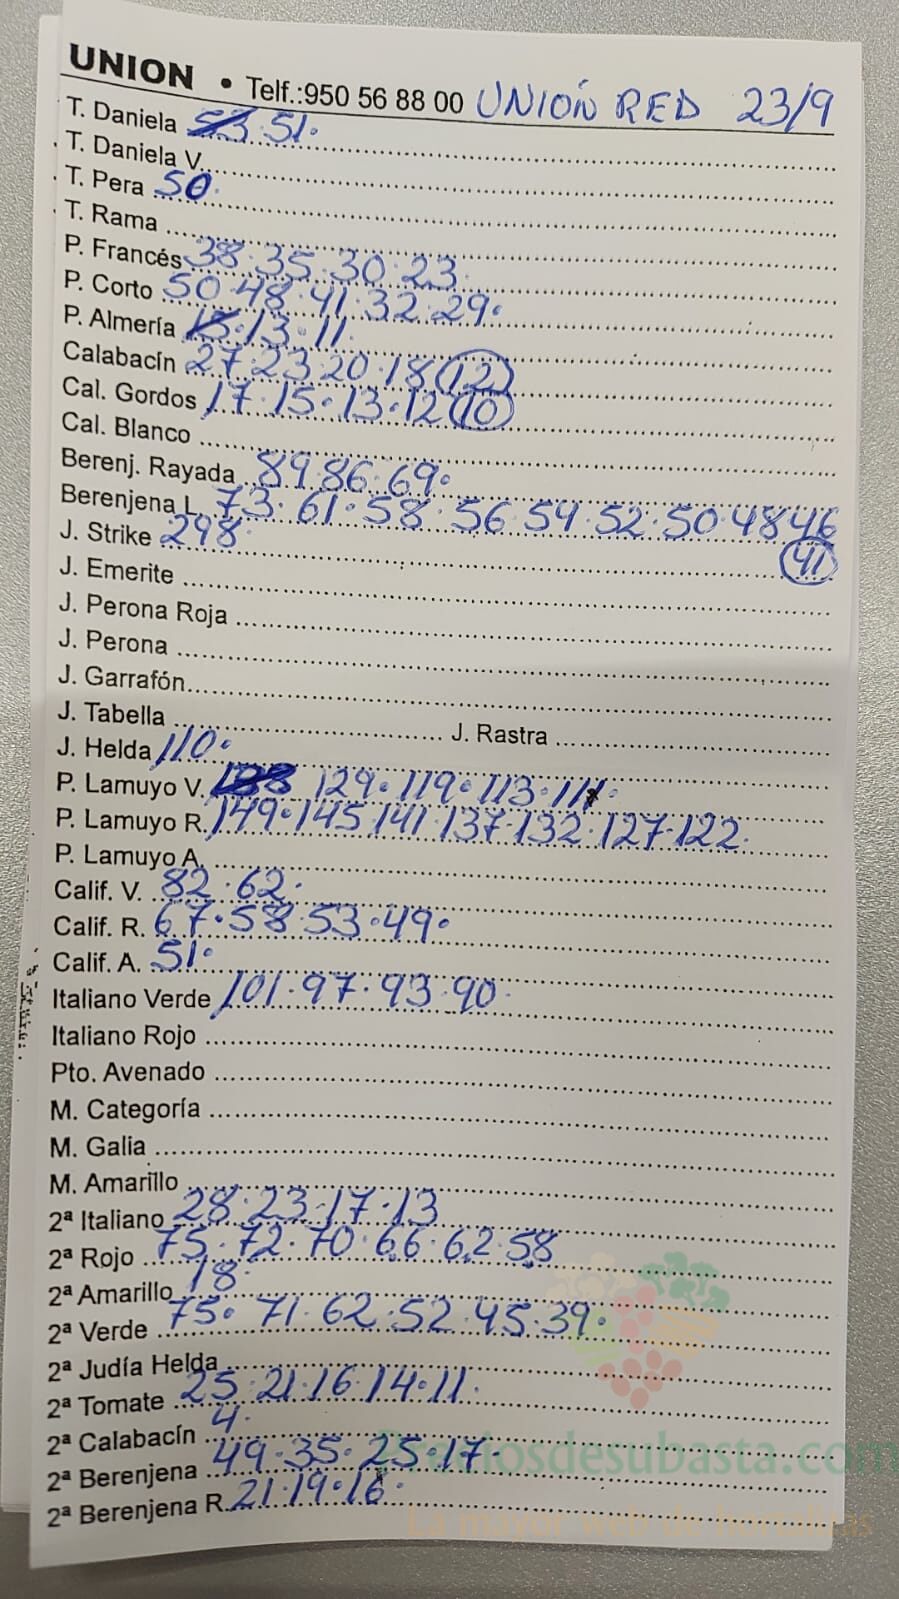 UNION • Telf.:950 56 88 00 UNIÓN RED 23/9
T. Daniela 53 51.
T. Daniela V.
T. Pera 50.
T. Rama
P. Francés 38.35.30.23.
P. Corto 50.48.41.32.29.
P. Almería 15.13.11.
Calabacín 27.23.20.18 12
Cal. Gordos 17.15.13.12 10
Cal. Blanco
Berenj. Rayada 89.86.69.
Berenjena L. 73.61.58.56.54.52.50.48 46
41
J. Strike 298.
J. Emerite
J. Perona Roja
J. Perona
J. Garrafón
J. Tabella J. Rastra
J. Helda 110.
P. Lamuyo V. 129.119.113.111.
P. Lamuyo R. 149.145.141.137.132.127.122.
P. Lamuyo A.
Calif. V. 82.62.
Calif. R. 67.58.53.49.
Calif. A. 51.
Italiano Verde 101.97.93.90.
Italiano Rojo
Pto. Avenado
M. Categoría
M. Galia
M. Amarillo
2ª Italiano 28.23.17.13
2ª Rojo 75.72.70.66.62.58
2ª Amarillo 18.
2ª Verde 75.71.62.52.45.39.
2ª Judía Helda
2ª Tomate 25.21.16.14.11.
2ª Calabacín 4.
2ª Berenjena 49.35.25.17.
2ª Berenjena R. 21.19.16.
Preciosdesubasta.com
La mayor web de hortalizas